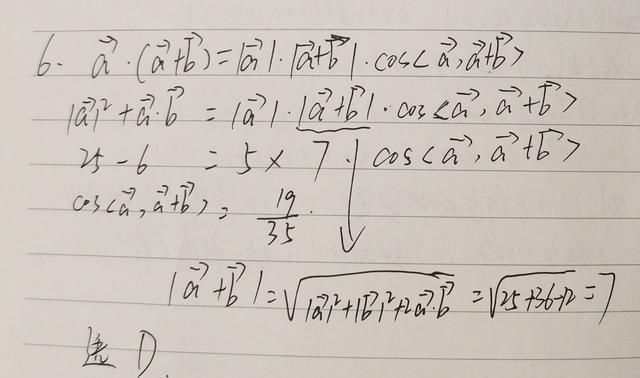 6. a⃗·(a⃗+b⃗)=|a⃗|·|a⃗+b⃗|·cos<a⃗,a⃗+b⃗>
|a⃗|²+a⃗·b⃗ = |a⃗|·|a⃗+b⃗|·cos<a⃗,a⃗+b⃗>
25-6 = 5×7·cos<a⃗,a⃗+b⃗>
cos<a⃗,a⃗+b⃗>= 19/35.
|a⃗+b⃗|=√(|a⃗|²+|b⃗|²+2a⃗·b⃗) =√(25+36-12) =7
选 D.